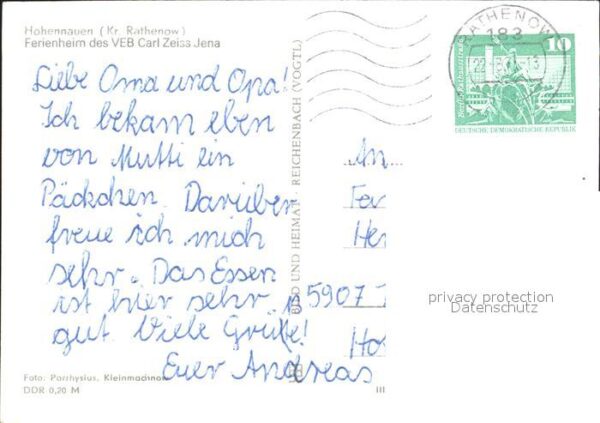 Hohennauen (Kr. Rathenow)
Ferienheim des VEB Carl Zeiss Jena
Liebe Oma und Opa!
Ich bekam eben
von Mutti ein
Päckchen. Darüber
freue ich mich
sehr. Das Essen
ist hier sehr
gut. Viele Grüße!
Euer Andreas
Foto: Parrhysius, Kleinmachnow
DDR 0,20 M
III
BILD UND HEIMAT · REICHENBACH (VOGTL)
RATHENOW
183
10
DEUTSCHE DEMOKRATISCHE REPUBLIK
An
Fa
He
5907
Ho
privacy protection
Datenschutz